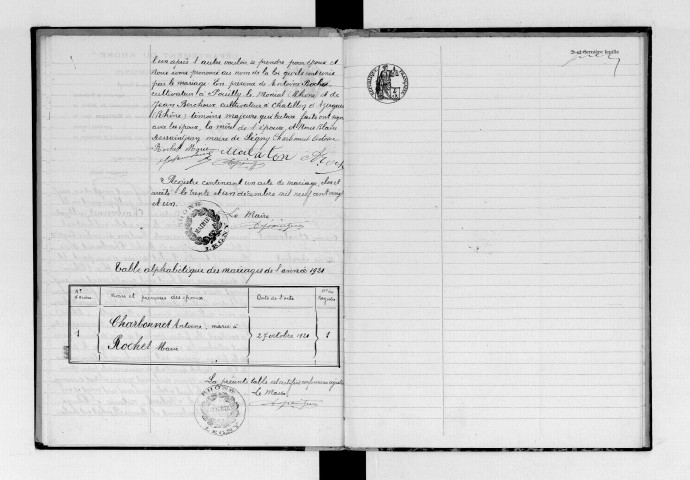 l'un après l'autre vouloir se prendre pour époux et
nous avons prononcé au nom de la loi qu'ils sont unis
par le mariage. En présence de Antoine Rochet
cultivateur à Pouilly le Monial Rhône et de
Jean Berchoux cultivateur à Chatillon d'Azergues
(Rhône) témoins majeurs qui lecture faite ont signé
avec les époux, la mère de l'époux, et Nous
maire de Légny Charbonnet
Rochet
Registre contenant un acte de mariage, clos et
arrêté le trente et un décembre mil neuf cent vingt
et un.
Le Maire
RHONE
MAIRIE
LEGNY
Table alphabétique des mariages de l'année 1921
N° d'ordre
Noms et prénoms des époux
Date de l'acte
N° du Registre
1
Charbonnet Antoine, marié à
Rochet Marie
27 octobre 1921
1
La présente table est certifiée conforme au registre
Le Maire,
RHONE
MAIRIE
LEGNY
et dernière feuille